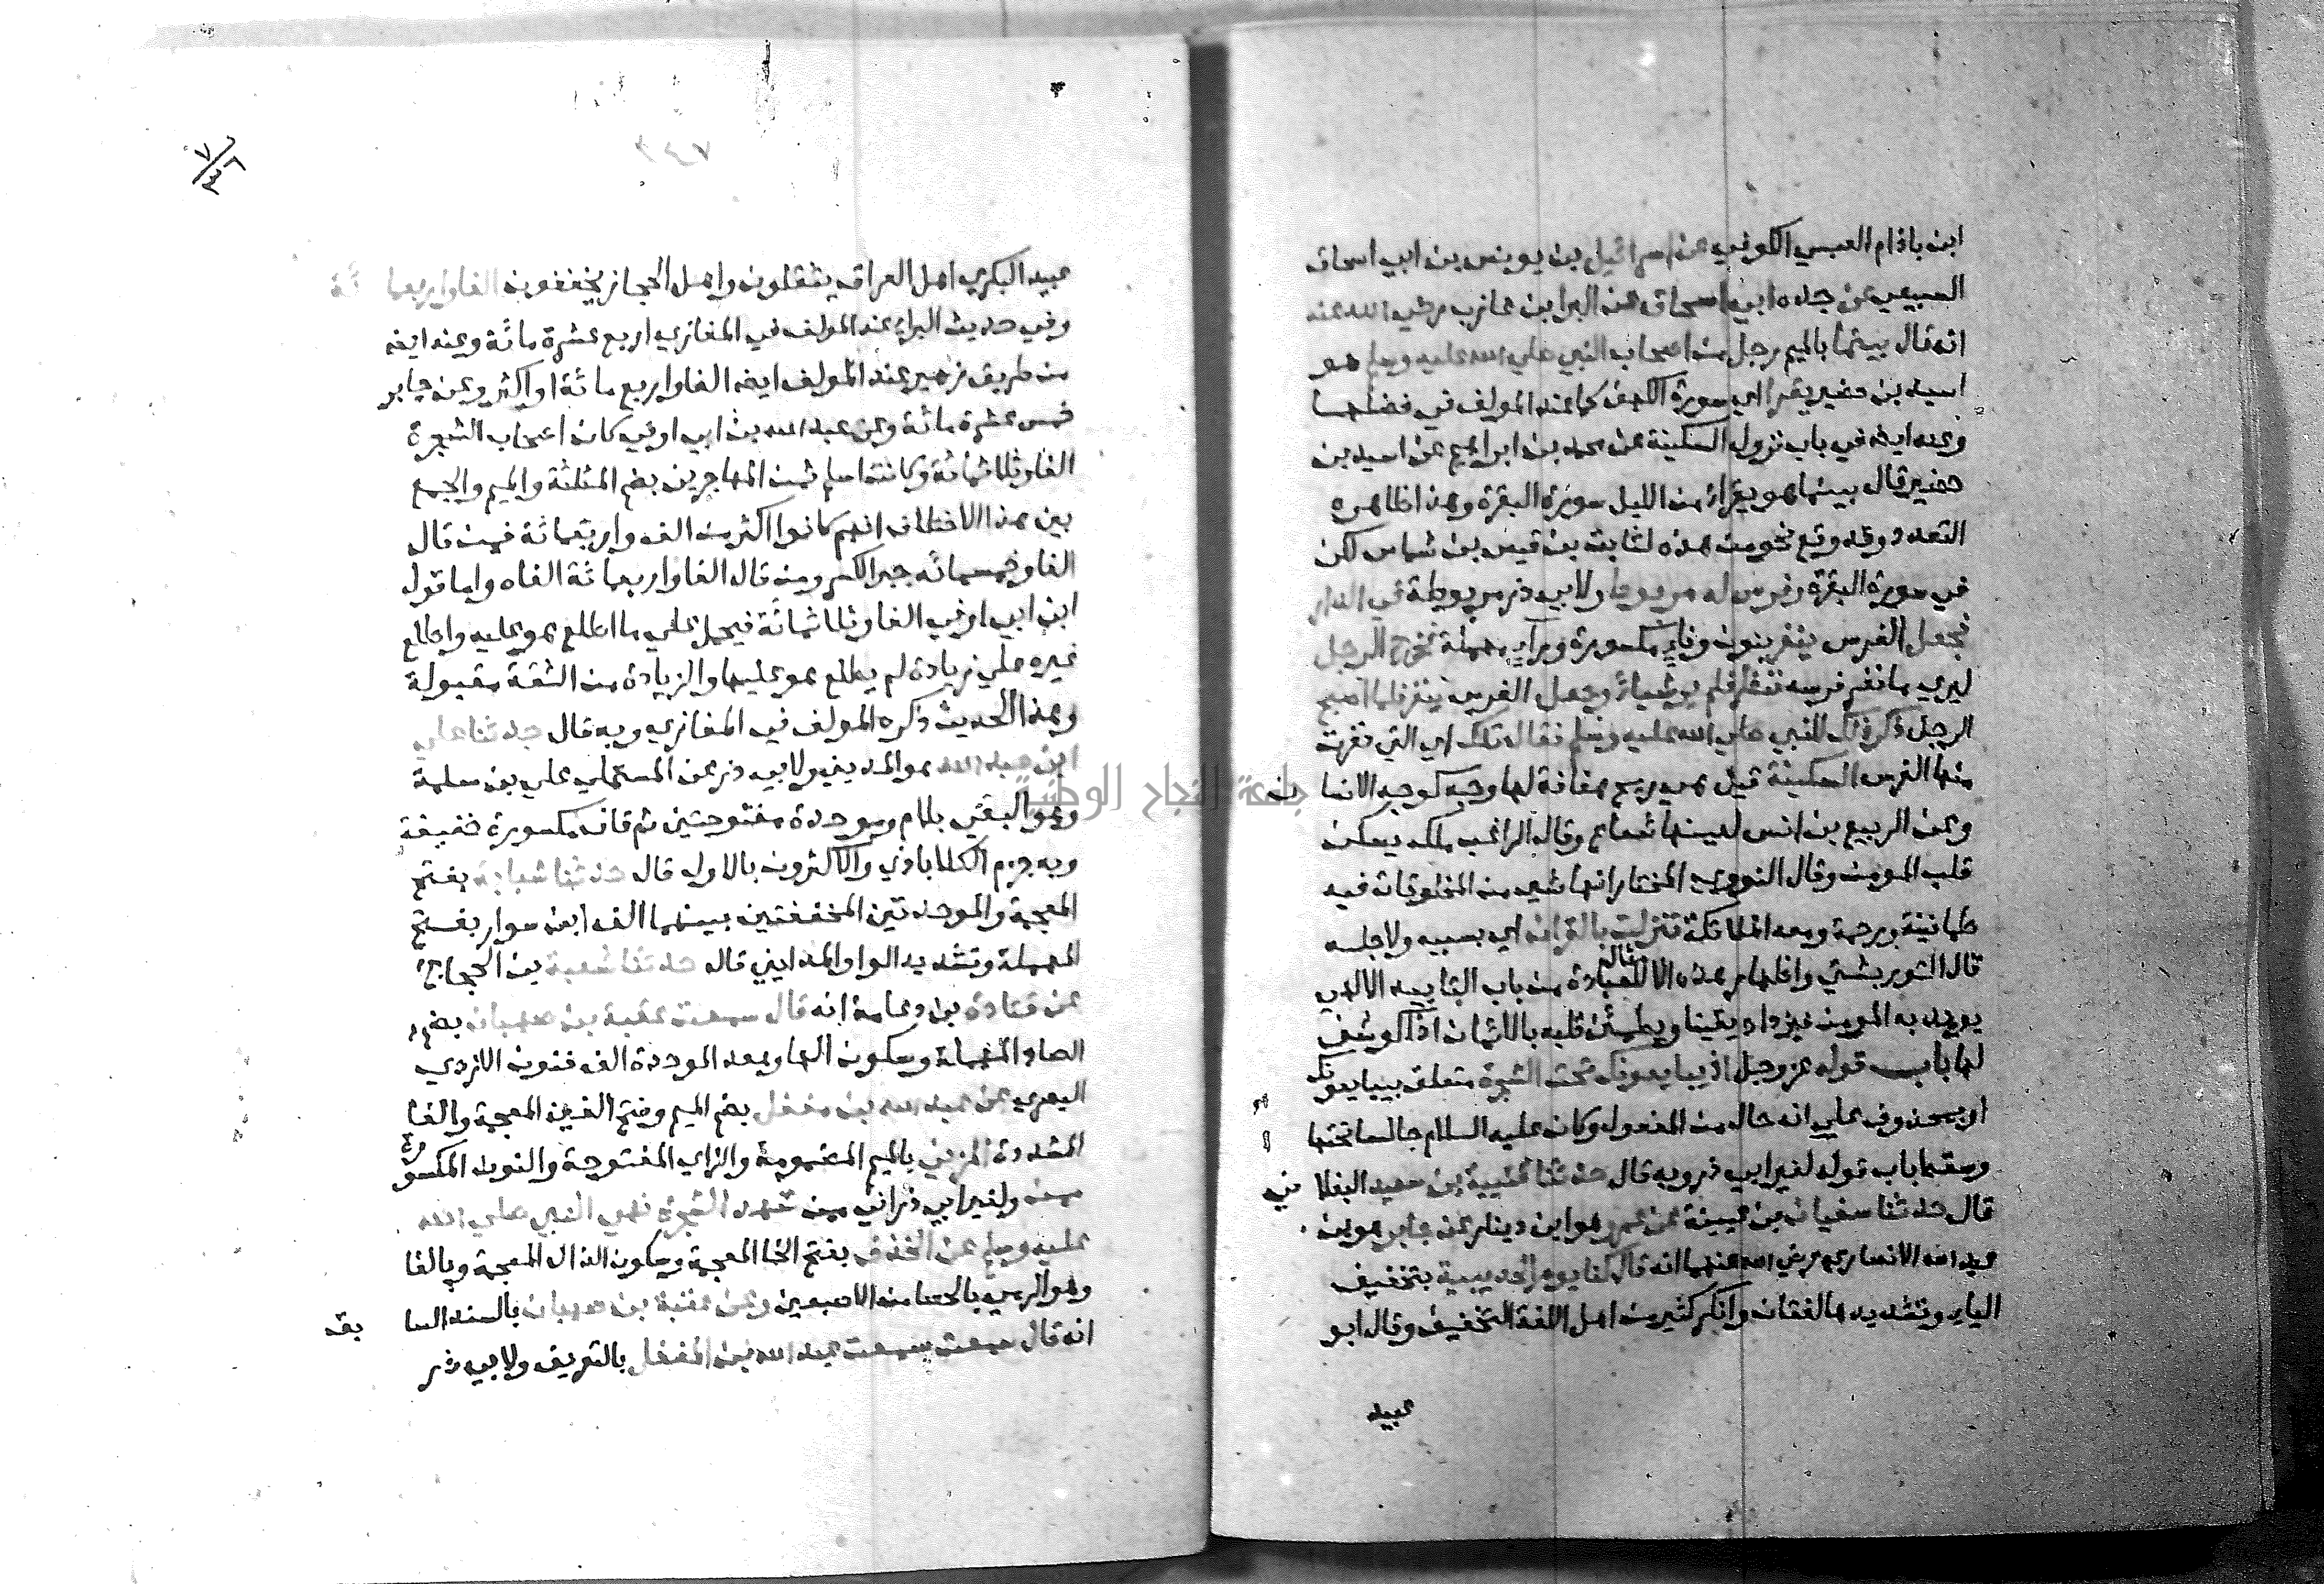 ابن باذام العبسي الكوفي عن اسرائيل بن يونس بن ابي اسحاق
السبيعي عن جده ابي اسحاق عن البرا بن عازب رضي الله عنه
انه قال بينما بالميم رجل من اصحاب النبي صلي الله عليه وسلم هو
اسيد بن حضير يقرا اي سورة الكهف كما عند المولف في فضلها
وعنده ايضا في باب نزول السكينة عن محمد بن ابراهيم عن اسيد بن
حضير قال بينما هو يقرا من الليل سورة البقرة وهذا ظاهره
التعدد وقد وقع نحو من هذه لثابت بن قيس بن شماس لكن
في سورة البقرة وفرس له مربوط ولابي ذر مربوطة في الدار
فجعل الفرس ينفر بنون وفاء مكسورة وراء مهملة فخرج الرجل
ليري ما نفر فرسه فنظر فلم ير شيأ وجعل الفرس ينفر فلما اصبح
الرجل ذكر ذلك للنبي صلي الله عليه وسلم فقال تلك اي التي نفرت
منها الفرس السكينة قيل هي ريح هفافة لها وجه كوجه الانسان
وعن الربيع بن انس لعينها شعاع وقال الراغب ملك يسكن
قلب المومن وقال النووي المختار انها شي من المخلوقات فيه
طمانينة ورحمة ومعه الملائكة تنزلت بالقران اي بسببه ولاجله
قال التوربشتي واظهار هذه الامثال للعباد من باب التاييد الالهي
يويد به المومن فيزداد يقينا ويطمئن قلبه بالايمان اذا كوشف
لها باب قوله عز وجل اذ يبايعونك تحت الشجرة متعلق بيبايعونك
او بمحذوف علي انه حال من المفعول وكان عليه السلام جالسا تحتها
وسقط باب قوله لغير ابي ذر وبه قال حدثنا قتيبة بن سعيد البغلاني
قال حدثنا سفيان بن عيينة عن عمرو هو ابن دينار عن جابر هو بن
عبد الله الانصاري رضي الله عنهما انه قال كنا يوم الحديبية بتخفيف
الياء وتشديدها لغتان وانكر كثير من اهل اللغة التخفيف وقال ابو
عبيد
٣٤٧
٣٤٧
عبيد البكري اهل العراق يثقلون واهل الحجاز يخففون الفا واربعمائة
وفي حديث البراء عند المولف في المغازي اربع عشرة مائة وعنه ايضا
من طريق زهير عند المولف ايضا الفا واربع مائة او اكثر وعن جابر
خمس عشرة مائة وعن عبد الله بن ابي اوفي كان اصحاب الشجرة
الفا وثلاثمائة وكانت اسلم ثمن المهاجرين بضم المثلثة والميم والجمع
بين هذا الاختلاف انهم كانوا اكثر من الف واربعمائة فمن قال
الفا وخمسمائه جبر الكسر ومن قال الفا واربعمائة الغاه واما قول
ابن ابي اوفي الفا وثلاثمائة فيحمل علي ما اطلع هو عليه واطلع
غيره علي زيادة لم يطلع هو عليها والزيادة من الثقة مقبولة
وهذا الحديث ذكره المولف في المغازي وبه قال حدثنا علي
ابن عبد الله هو المديني ولابي ذر عن المستملي علي بن سلمة
وهو اللبقي بلام وموحدة مفتوحتين ثم قاف مكسورة خفيفة
وبه جزم الكلاباذي والاكثرون بالاول قال حدثنا شبابة بفتح
المعجمة والموحدتين المخففتين بينهما الف ابن سوار بفتح
المهملة وتشديد الواو المدايني قال حدثنا شعبة بن الحجاج
عن قتادة بن دعامة انه قال سمعت عقبة بن صهبان بضم
الصاد المهملة وسكون الها وبعد الموحدة الف فنون الازدي
البصري عن عبد الله بن مغفل بضم الميم وفتح الغين المعجمة والفا
المشددة المزني بالميم المضمومة والزاي المفتوحة والنون المكسورة
ممن ولغير ابي ذر اني ممن شهد الشجرة نهي النبي صلي الله
عليه وسلم عن الخذف بفتح الخا المعجمة وسكون الذال المعجمة وبالفا
وهو الرمي بالحصا من الاصبعين وعن عقبة بن صهبان بالسند السابق
انه قال سمعت سمعت عبد الله بن المغفل بالتعريف ولابي ذر
جامعة النجاح الوطنية